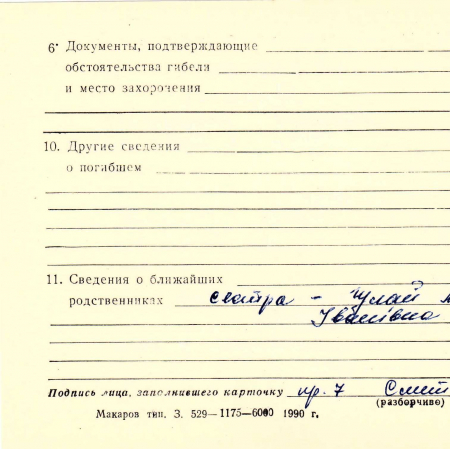 6. Документы, подтверждающие
обстоятельства гибели
и место захоронения
10. Другие сведения
о погибшем
11. Сведения о ближайших
родственниках сестра -
Іванівна
Подпись лица, заполнившего карточку пр. 7
(разборчиво)
Макаров тип. З. 529—1175—6000 1990 г.